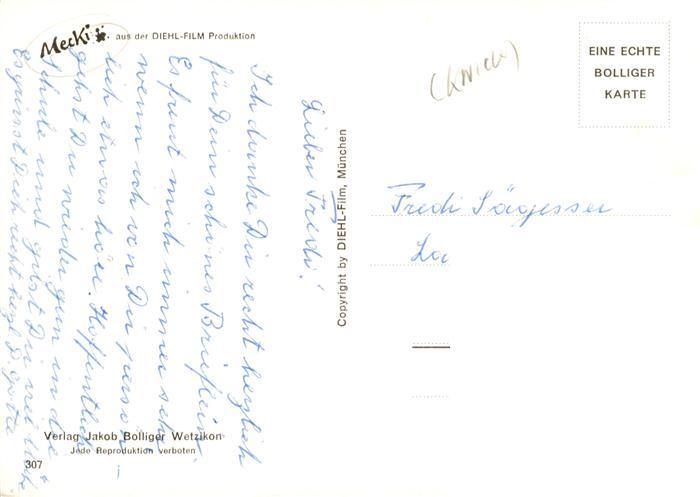 Mecki aus der DIEHL-FILM Produktion
EINE ECHTE
BOLLIGER
KARTE
(Knick)
Lieber Fredi!
Ich danke Dir recht herzlich
für Dein schönes Brieflein.
Es freut mich immer sehr
wenn ich von Dir persön-
lich etwas höre. Hoffentlich
gehst Du wieder gern in die
Schule und gibst Dir viel Mühe
Es grüsst Dich recht herzl.
Copyright by DIEHL-Film, München
Fredi
Verlag Jakob Bolliger Wetzikon
Jede Reproduktion verboten
307